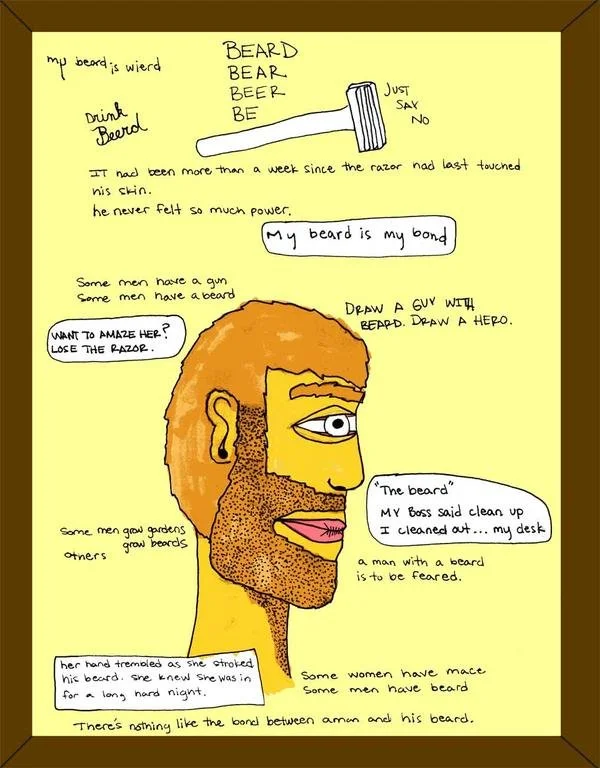 my beard is wierd
BEARD
BEAR
BEER
BE
Drink
Beerd
JUST
SAY
NO
IT had been more than a week since the razor had last touched
his skin.
he never felt so much power.
My beard is my bond
Some men have a gun
Some men have a beard
WANT TO AMAZE HER?
LOSE THE RAZOR.
DRAW A GUY WITH
BEARD. DRAW A HERO.
"The beard"
MY Boss said clean up
I cleaned out... my desk
Some men grow gardens
others grow beards
a man with a beard
is to be feared.
her hand trembled as she stroked
his beard. She knew she was in
for a long hard night.
Some women have mace
Some men have beard
There's nothing like the bond between a man and his beard.